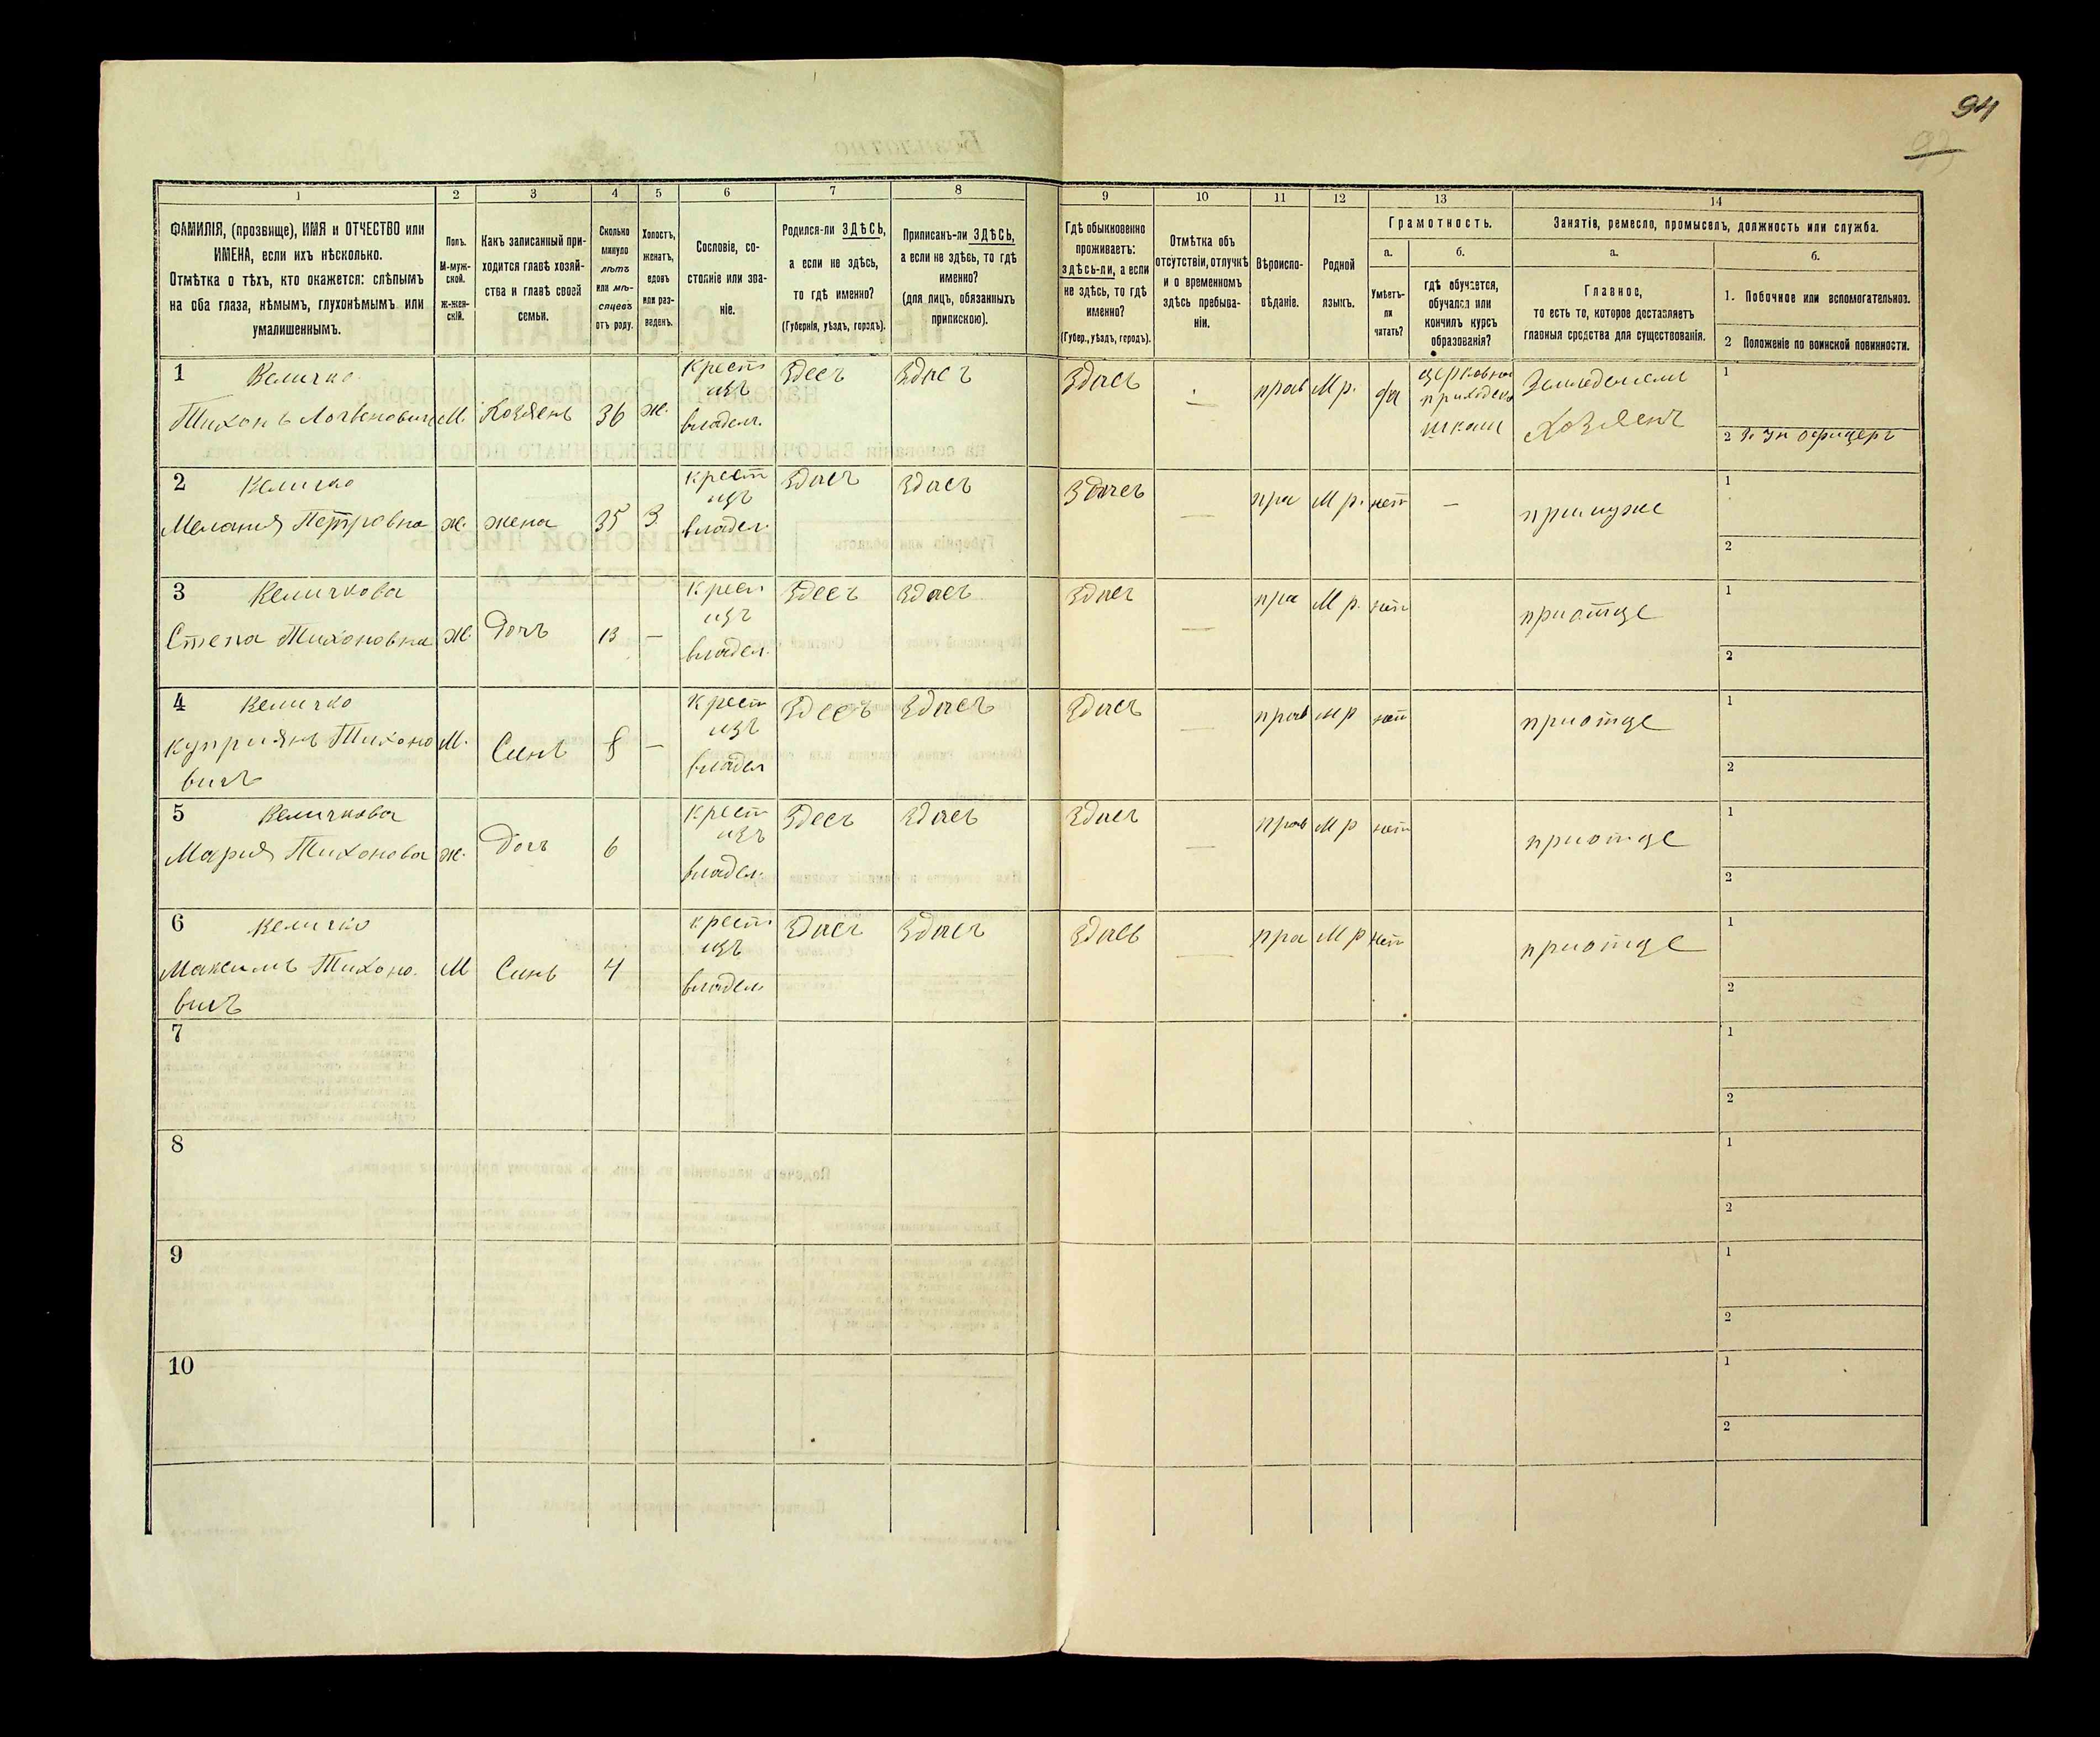 94
93
1
2
3
4
5
6
7
8
9
10
11
12
13
14
ФАМИЛІЯ, (прозвище), ИМЯ и ОТЧЕСТВО или
ИМЕНА, если ихъ нѣсколько.
Отмѣтка о тѣхъ, кто окажется: слѣпымъ
на оба глаза, нѣмымъ, глухонѣмымъ или
умалишеннымъ.
Полъ.
М-муж-
ской.
Ж-жен-
скій.
Какъ записанный при-
ходится главѣ хозяй-
ства и главѣ своей
семьи.
Сколько
минуло
лѣтъ
или мѣ-
сяцевъ
отъ роду.
Холостъ,
женатъ,
вдовъ
или раз-
веденъ.
Сословіе, со-
стояніе или зва-
ніе.
Родился-ли ЗДѢСЬ,
а если не здѣсь,
то гдѣ именно?
(Губернія, уѣздъ, городъ).
Приписанъ-ли ЗДѢСЬ,
а если не здѣсь, то гдѣ
именно?
(для лицъ, обязанныхъ
припискою).
Гдѣ обыкновенно
проживаетъ:
здѣсь-ли, а если
не здѣсь, то гдѣ
именно?
(Губер., уѣздъ, городъ).
Отмѣтка объ
отсутствіи, отлучкѣ
и о временномъ
здѣсь пребыва-
ніи.
Вѣроиспо-
вѣданіе.
Родной
языкъ.
Грамотность.
а.
Умѣетъ-
ли
читать?
б.
гдѣ обучается,
обучался или
кончилъ курсъ
образованія?
Занятіе, ремесло, промыселъ, должность или служба.
а.
Главное,
то есть то, которое доставляетъ
главныя средства для существованія.
б.
1. Побочное или вспомогательное.
2 Положеніе по воинской повинности.
1 Величко
Тихонъ М. Хозяенъ 36 ж.
Крест изъ владел. Здесъ Здасъ
Здасъ прав М р. да
школи
Хозяенъ
1
2 офицеръ
2 Величко
Мелания Петровна ж. жена 35 З
Крест изъ владел. Здасъ Здасъ
Здась — пра М р. нет —
примуже
1
2
3 Величкова
Степа Тихоновна ж. Дочъ 13 —
Крест изъ владел. Здесъ Здасъ
Здасъ — пра М р. нет
приотце
1
2
4 Величко
Куприянъ Тихоно
вичъ М. Синъ 8 —
Крест изъ владел Здесъ Здасъ
Здасъ — прав М р нет
приотце
1
2
5 Величкова
Мария Тихонова ж. Дочъ 6
Крест изъ владел. Здесъ Здасъ
Здасъ — прав М р нет
приотце
1
2
6 Величко
Максимъ Тихоно.
вичъ М Синъ 4
Крест изъ владел. Здасъ Здасъ
Здась — пра М р нет
приотце
1
2
7
1
2
8
1
2
9
1
2
10
1
2